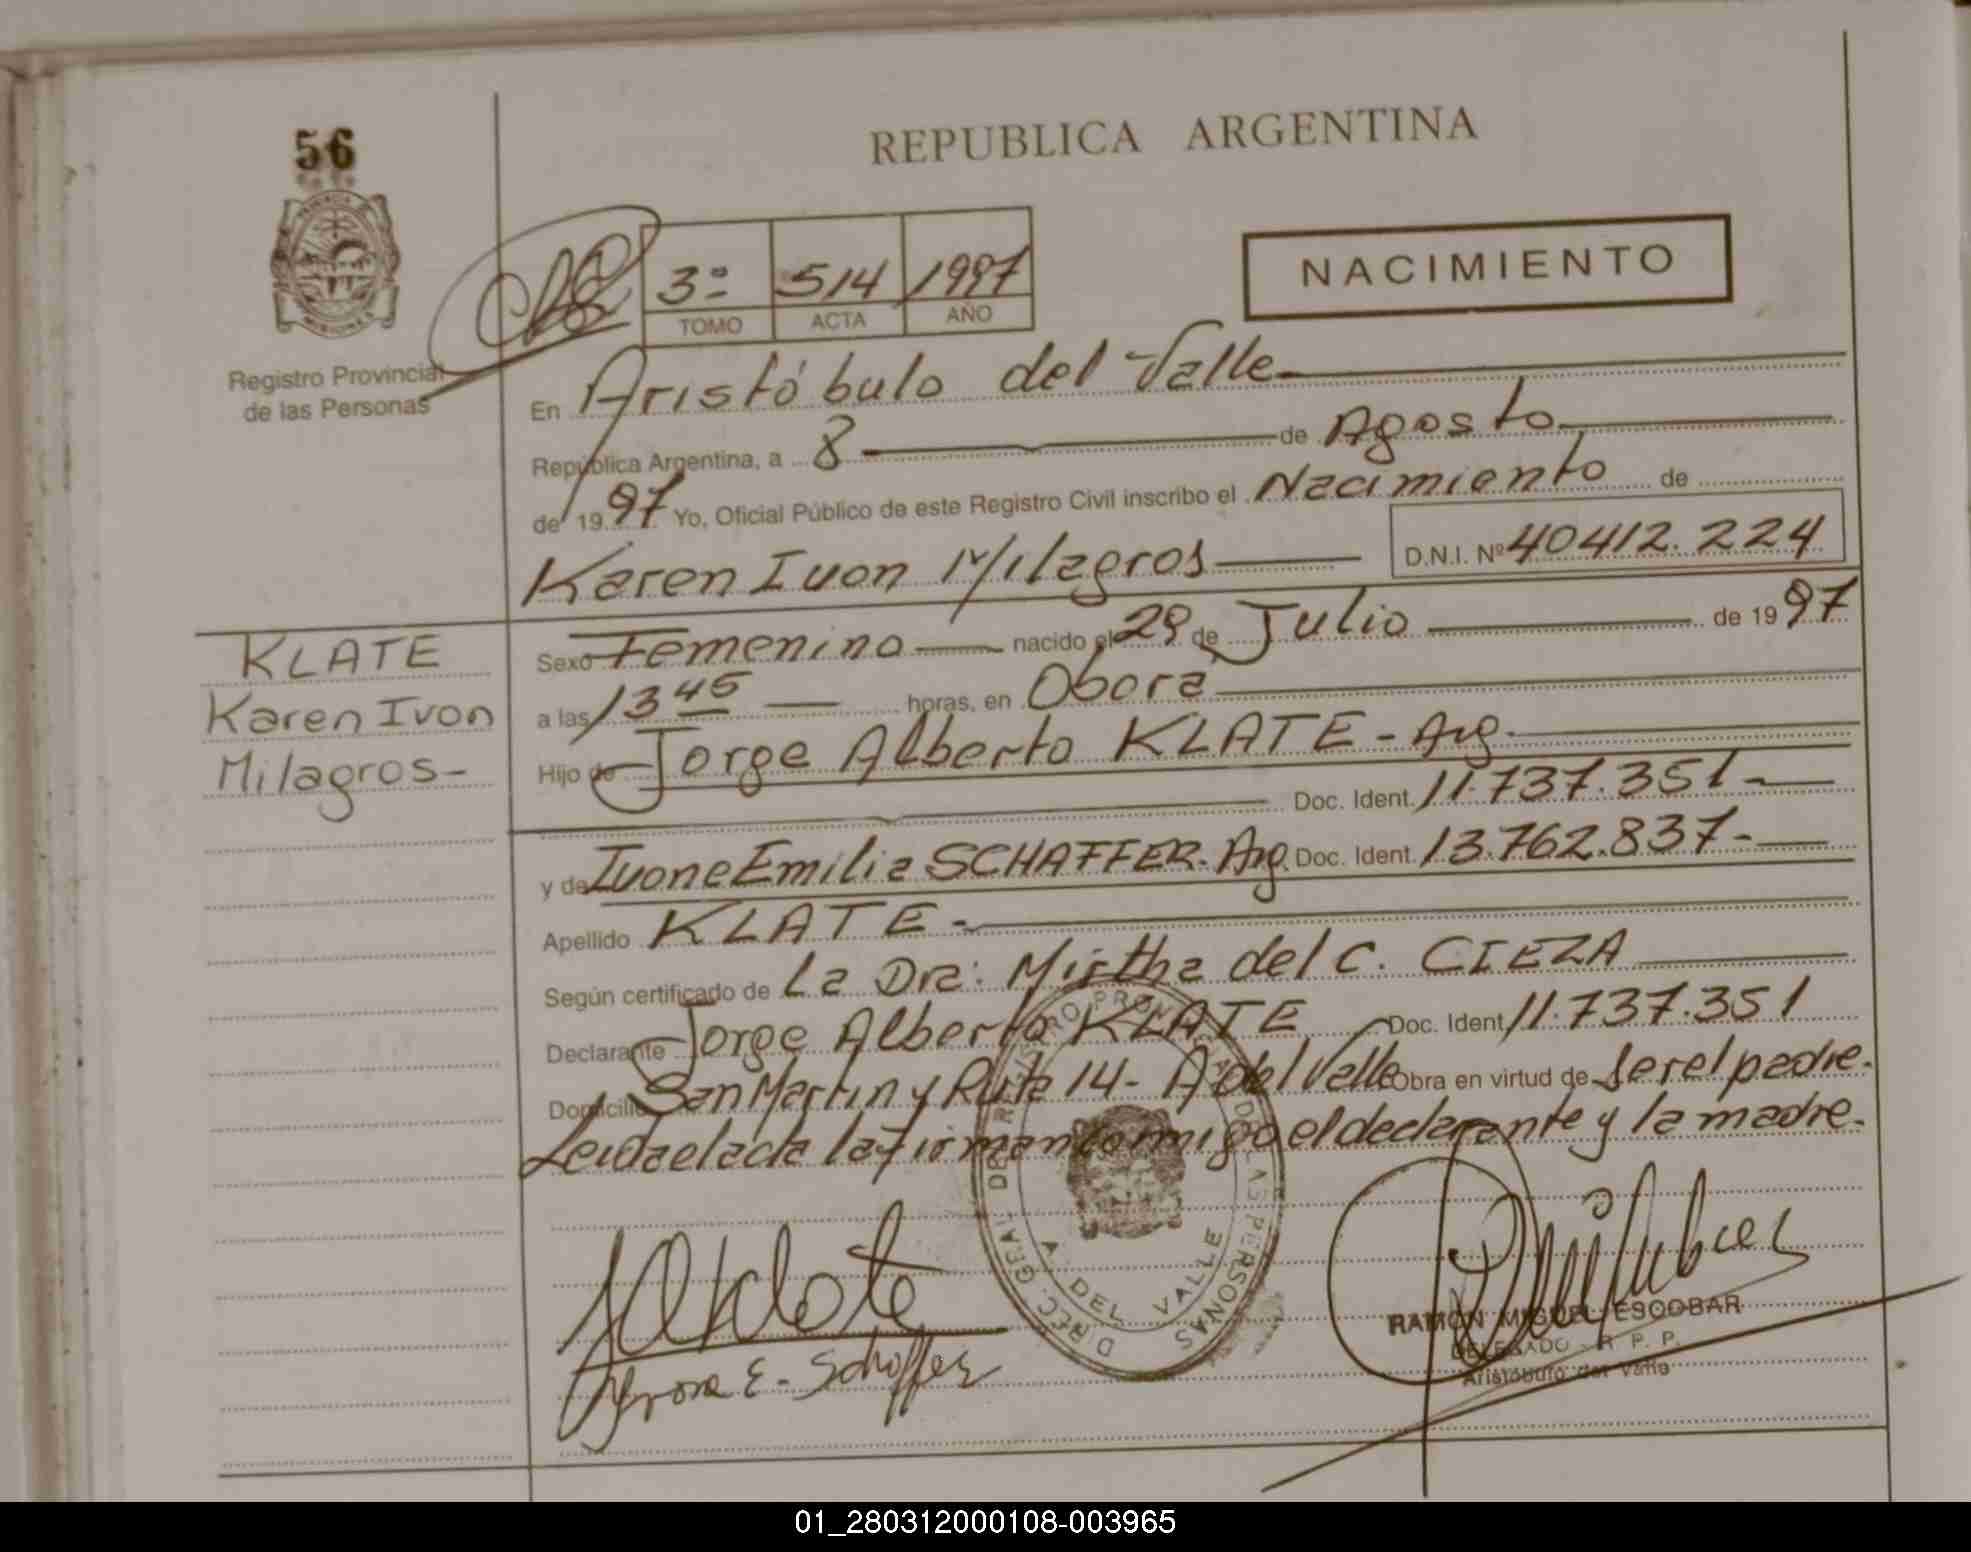 56
REPUBLICA ARGENTINA
MISIONES
Registro Provincial
de las Personas
3º 514 1997
TOMO ACTA AÑO
NACIMIENTO
En Aristóbulo del Valle
República Argentina, a 8 de Agosto
de 1997 Yo, Oficial Público de este Registro Civil inscribo el Nacimiento de
Karen Ivon Milagros D.N.I. Nº 40412.224
KLATE
Karen Ivon
Milagros-
Sexo Femenino nacido el 29 de Julio de 1997
a las 13 45 horas, en Oberá
Hijo de Jorge Alberto KLATE - Arg.
Doc. Ident. 11.737.351-
y de Ivone Emilia SCHAFFER. Arg. Doc. Ident. 13.762.837-
Apellido KLATE -
Según certificado de La Dra: Mirtha del C. CIEZA
Declarante Jorge Alberto KLATE Doc. Ident. 11.737.351
Domicilio San Martin y Ruta 14 - A del Valle Obra en virtud de Ser el padre.
Leida el acta la firman conmigo el declarante y la madre.
DIREC. GRAL. DE REGISTRO PROVINCIAL DE LAS PERSONAS
A. DEL VALLE
E. Schaffer
RAMON MIGUEL ESCOBAR
DELEGADO - R. P. P.
Aristóbulo del Valle
01_280312000108-003965